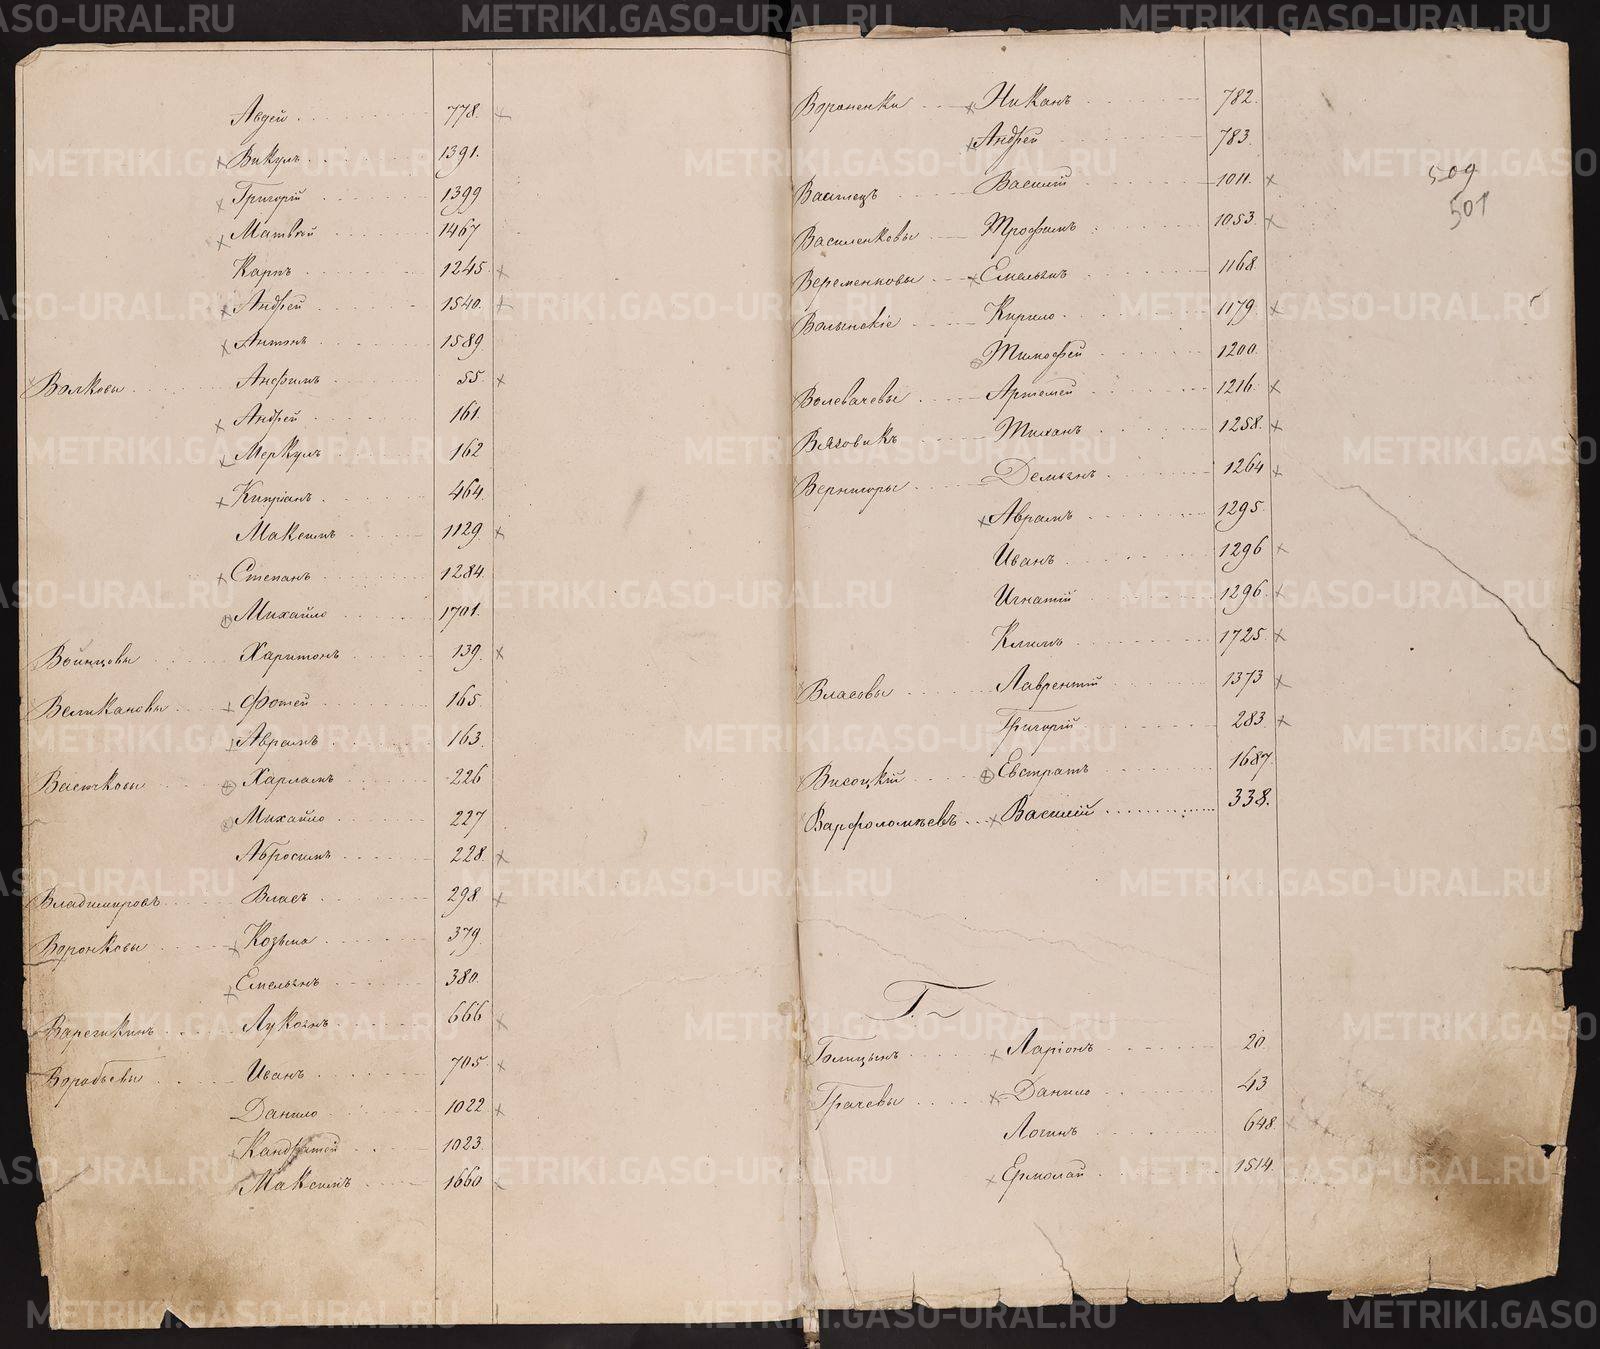 Авдей 778.
Викулъ 1391.
Григорій 1399
Матвѣй 1467
Карпъ 1245
Андрей 1540.
Антонъ 1589
Волковы Анфимъ 55
Андрей 161.
Меркулъ 162
Кипріанъ 464
Максимъ 1129
Степанъ 1284
Михайло 1701.
Воинцовы Харитонъ 139
Великановы Фотей 165
Аврамъ 163
Васичковы Харламъ 226
Михайло 227
Абросимъ 228
Владимировъ Власъ 298
Воронковы Козьма 379
Емельянъ 380
Варегикинъ Лукоянъ 666
Воробьевы Иванъ 705
Данило 1022
Кандратей 1023
Максимъ 1660
Вороненки Никанъ 782
Андрей 783
509
501
Василецъ Василій 1011.
Василенковы Трофимъ 1053
Веременковы Емельянъ 1168
Волынскіе Кирило 1179
Тимофей 1200
Волевачевы Артемей 1216
Вяховикъ Тиханъ 1258
Вернигоры Демьянъ 1264
Аврамъ 1295
Иванъ 1296
Игнатій 1296
Климъ 1725
Власовы Лаврентій 1373
Григорій 283
Висоцкій Евстратъ 1687
Варфоломѣевъ Василій 338.
Г.
Голицынъ Ларіонъ 20
Грачевы Данило 43
Логинъ 648
Ермолай 1514
METRIKI.GASO-URAL.RU